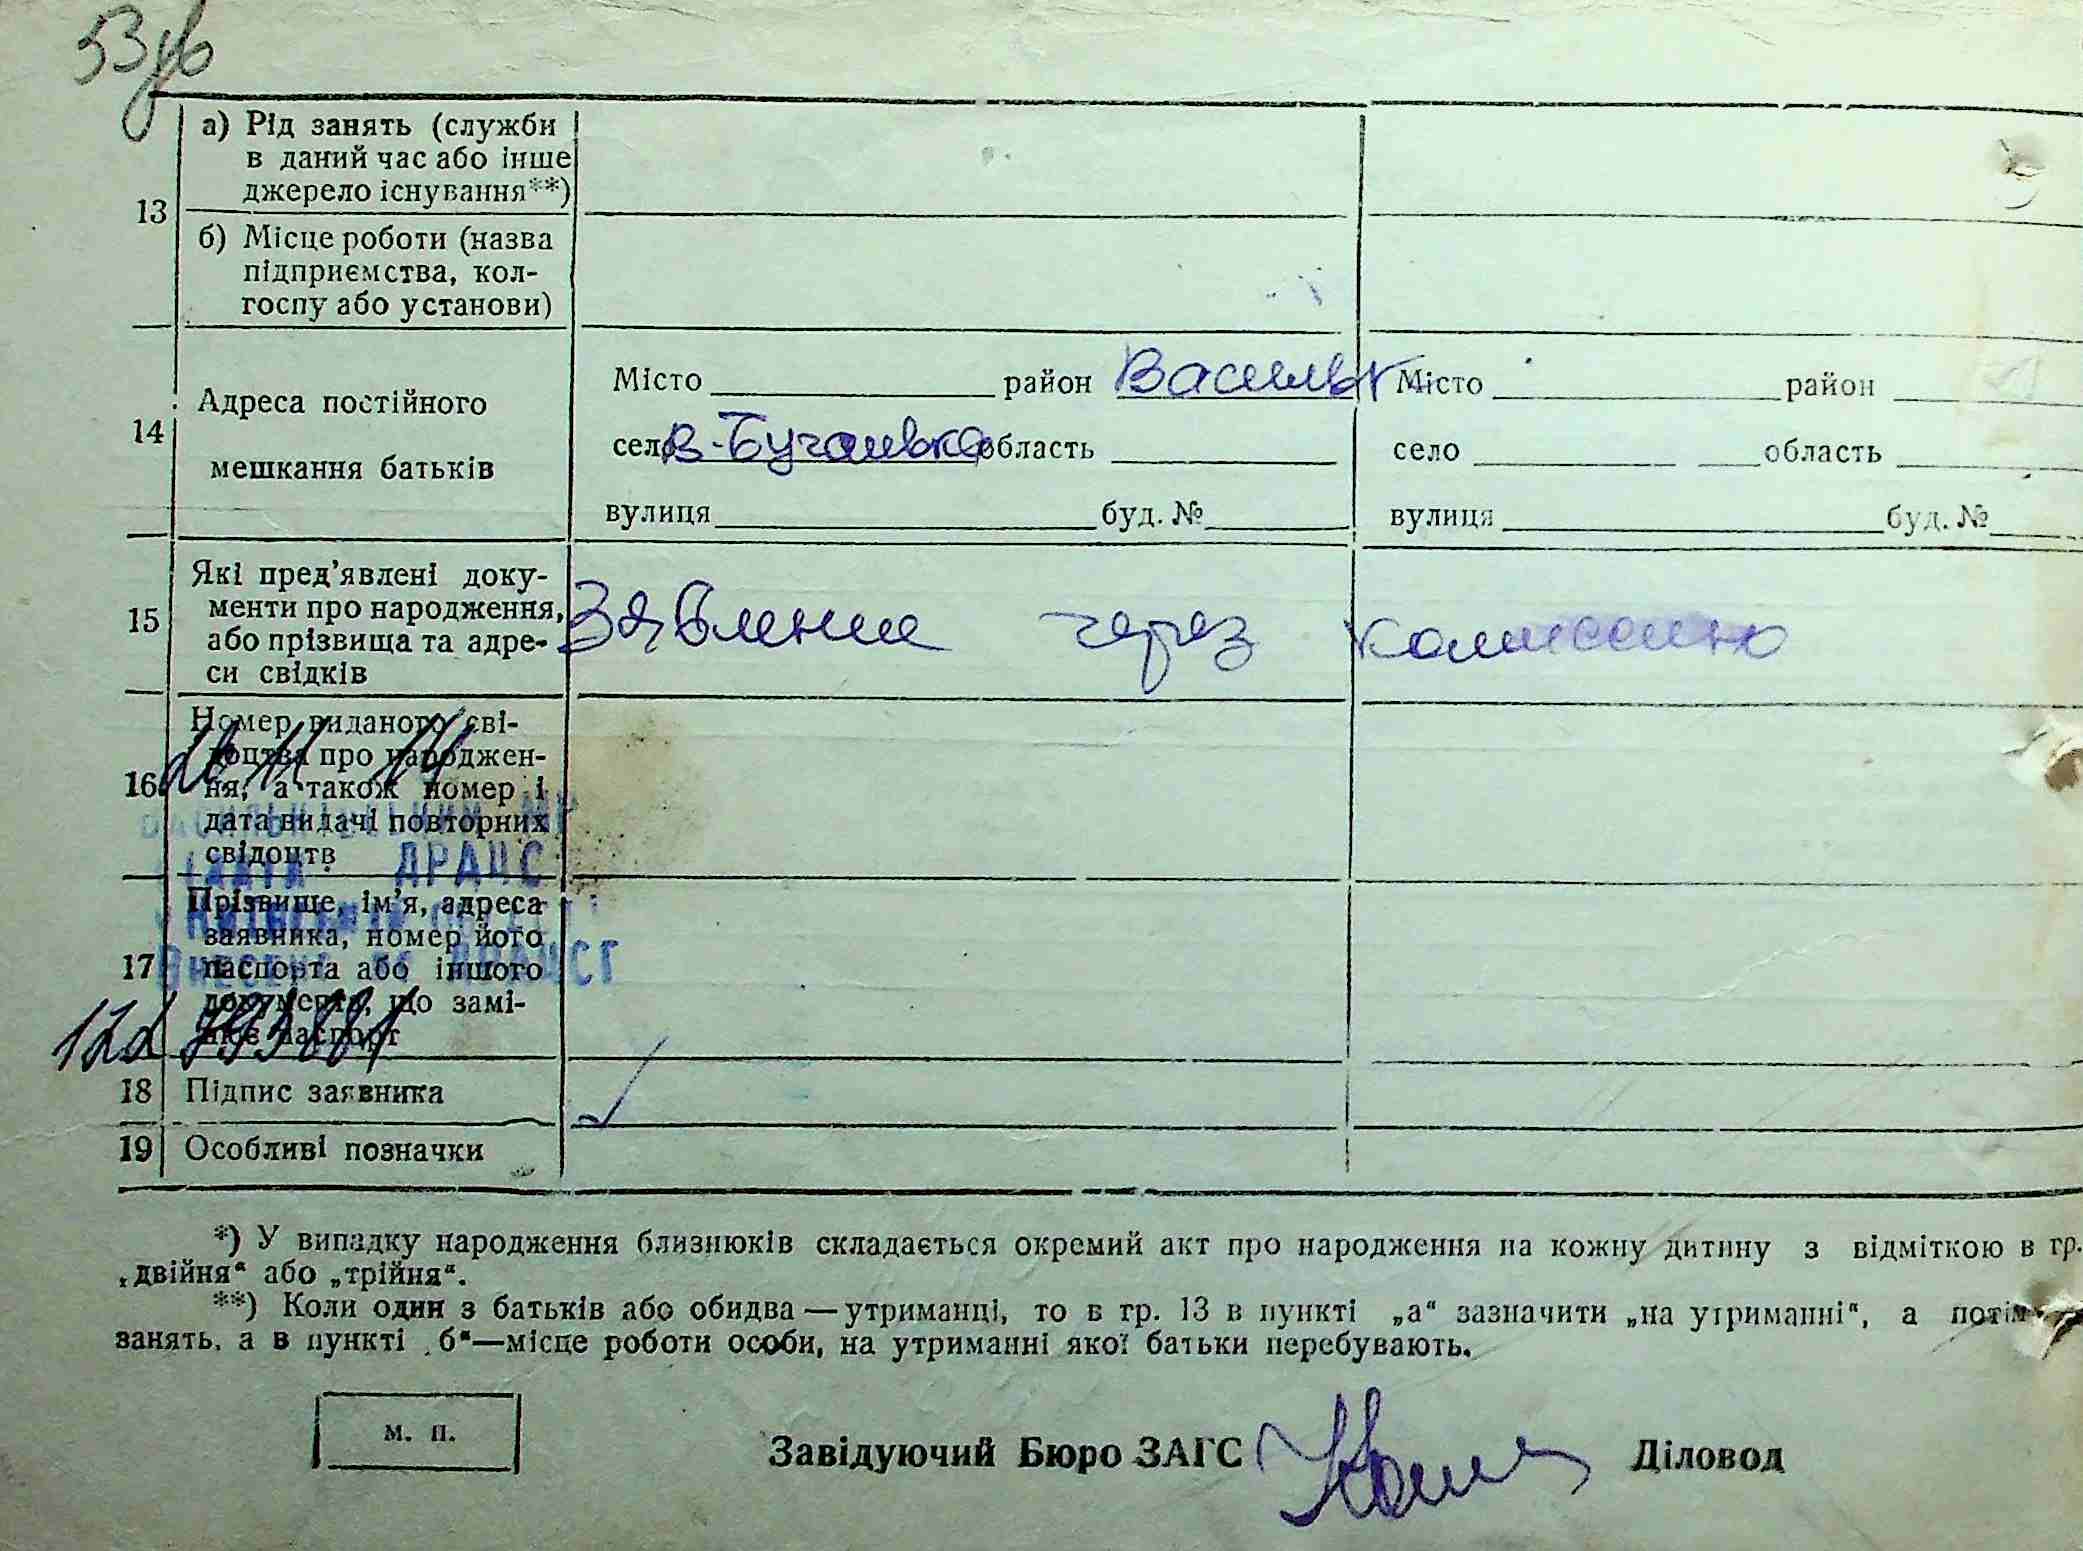 53
а) Рід занять (служби
в даний час або інше
джерело існування**)
13
б) Місце роботи (назва
підприємства, кол-
госпу або установи)
14
Адреса постійного
мешкання батьків
Місто район Васильк
село В-Бугаивка область
вулиця буд. №
Місто район
село область
вулиця буд. №
15
Які пред'явлені доку-
менти про народження,
або прізвища та адре-
си свідків
Заявление через комиссию
16
Номер виданого сві-
доцтва про народжен-
ня, а також номер і
дата видачі повторних
свідоцтв
ДРАЦС
17
Прізвище, ім'я, адреса
заявника, номер його
паспорта або іншого
документа, що замі-
нює паспорт
18 Підпис заявника
19 Особливі позначки
*) У випадку народження близнюків складається окремий акт про народження на кожну дитину з відміткою в гр.
„двійня“ або „трійня“.
**) Коли один з батьків або обидва — утриманці, то в гр. 13 в пункті „а“ зазначити „на утриманні“, а потім
занять, а в пункті „б“—місце роботи особи, на утриманні якої батьки перебувають.
м. п.
Завідуючий Бюро ЗАГС
Діловод